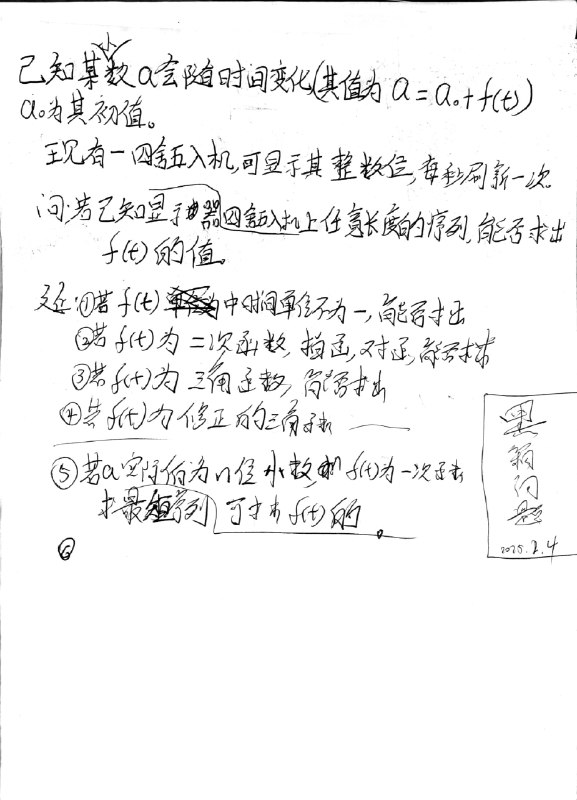 小
已知某数a会随时间变化(其值为 a=a₀+f(t))
a₀为其初值。
现有一四舍五入机,可显示其整数位,每秒刷新一次
问:若已知显示器四舍五入机上任意长度的序列,能否求出
f(t)的值。
①若f(t)中时间单位不为一,能否求出
②若f(t)为二次函数,指函,对函,能否求
③若f(t)为三角函数,能否求出
④若f(t)为修正的三角函数
⑤若a实际值为n位小数和f(t)为一次函数
求最短序列可求出f(t)的。
⑥
问题
2025.2.4